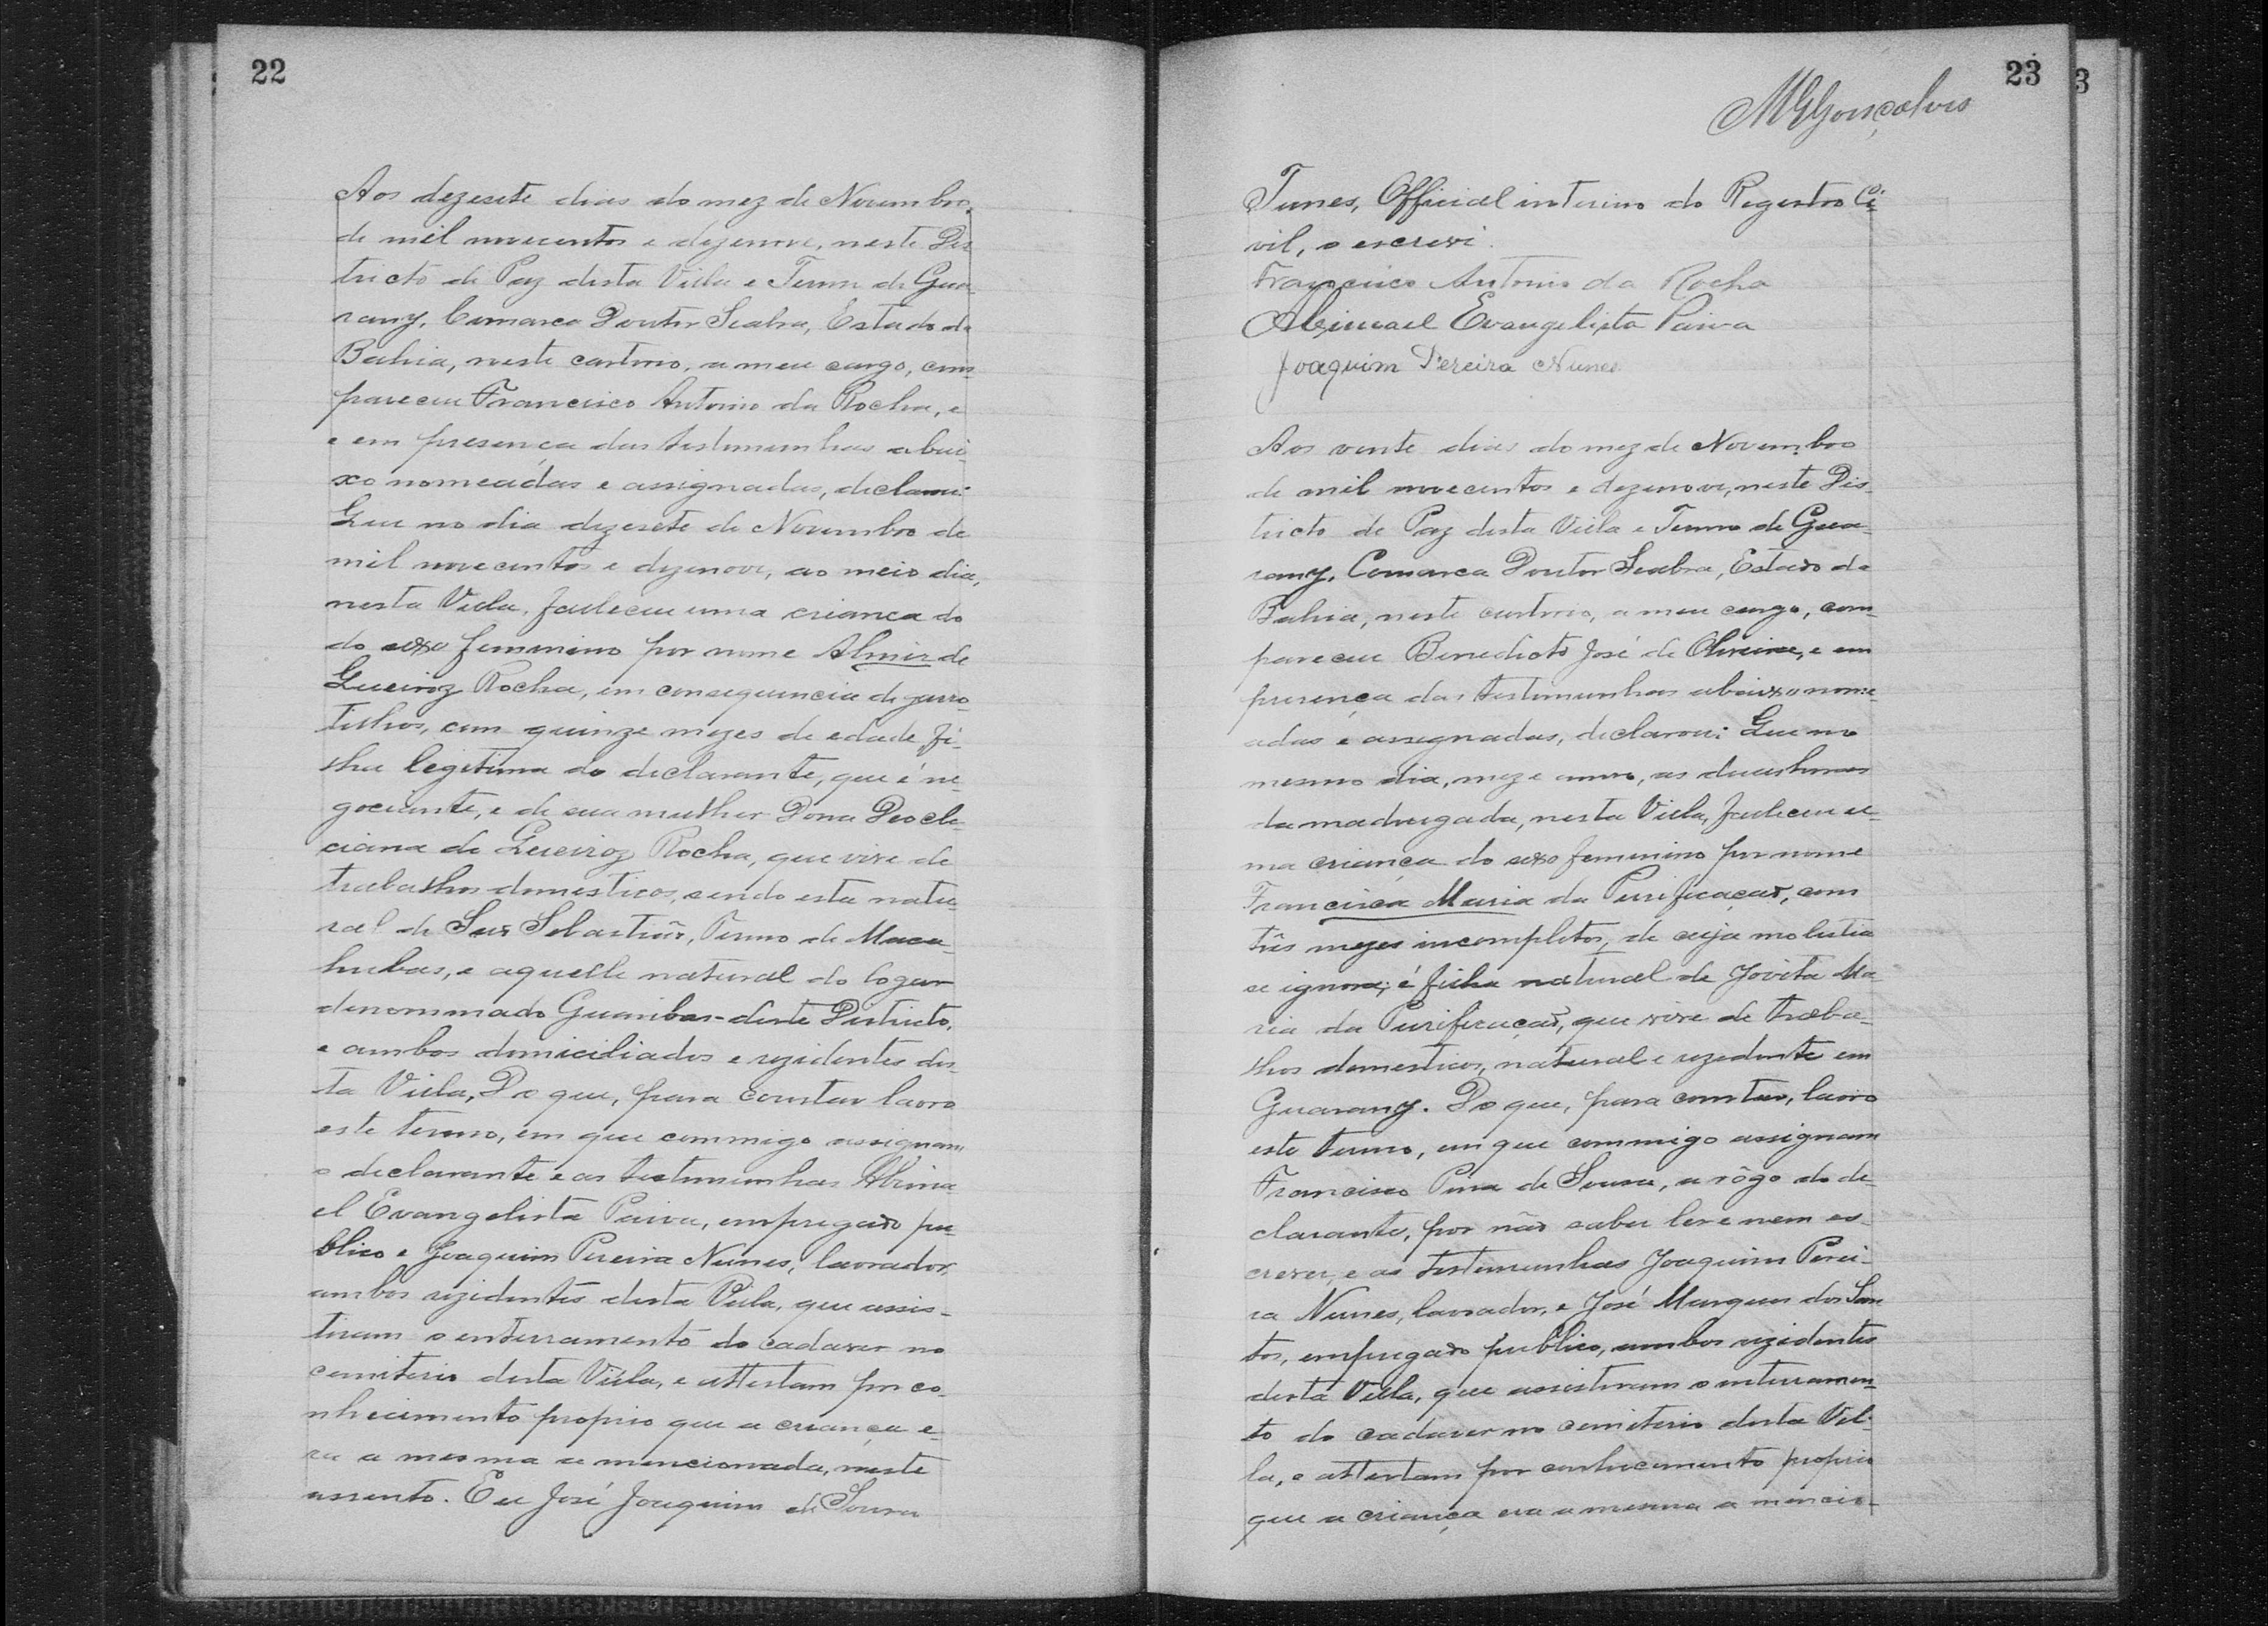 22
Aos dezesete dias do mez de Novembro
de mil novecentos e dezenove, neste Dis
tricto de Paz desta Villa e Termo de Gua-
rany, Comarca Doutor Seabra, Estado da
Bahia, neste cartorio, a meu cargo, com-
pareceu Francisco Antonio da Rocha, e
e em presença das testemunhas abai-
xo nomeadas e assignadas, declarou:
Que no dia dezesete de Novembro de
mil novecentos e dezenove, ao meio dia,
nesta Villa, falleceu uma criança do
do sexo femenino por nome Almir de
Queiroz Rocha, em consequencia de garro-
tilhos, com quinze mezes de edade, fi-
lha legitima do declarante, que é ne-
gociante, e de sua mulher Dona Deocle-
ciana de Queiroz Rocha, que vive de
trabalhos domesticos, sendo esta natu-
ral de São Sebastião, Termo de Maca-
hubas, e aquelle natural do logar
denominado Guaribas-deste Districto,
e ambos domiciliados e rezidentes des-
ta Villa, Do que, para constar lavro
este termo, em que commigo assignam
o declarante e as testemunhas Abima-
el Evangelista Paiva, empregado pu-
blico e Joaquim Pereira Nunes, lavrador,
ambos rezidentes desta Villa, que assis-
tiram o enterramento do cadaver no
cemiterio desta Villa, e attestam por co-
nhecimento proprio que a criança e-
ra a mesma a mencionada, neste
assento. Eu José Joaquim de Souza
23
3
MGGonçalves
Tunes, Official interino do Registro Ci-
vil, o escrevi.
Francisco Antonio da Rocha
Abimael Evangelista Paiva
Joaquim Pereira Nunes
Aos vinte dias do mez de Novembro
de mil novecentos e dezenove, neste Dis-
tricto de Paz desta Villa e Termo de Gua-
rany, Comarca Doutor Seabra, Estado da
Bahia, neste cartorio, a meu cargo, com-
pareceu Benedicto José de Oliveira, e em
presença das testemunhas abaixo nome-
adas e assignadas, declarou: Que no
mesmo dia, mez e anno, as duas horas
da madrugada, nesta Villa, falleceu u-
ma criança do sexo femenino por nome
Francisca Maria da Purificação, com
três mezes incompletos, de cuja molestia
se ignora; é filha natural de Jovita Ma-
ria da Purificação, que vive de traba-
lhos domesticos, natural e rezidente em
Guarany. Do que, para constar, lavro
este termo, em que commigo assignam
Francisco Pina de Souza, a rôgo do de-
clarante, por não saber ler e nem es-
crever, e as testemunhas Joaquim Perei-
ra Nunes, lavrador, e José Marques dos San
tos, empregado publico, ambos rezidentes
desta Villa, que assistiram o enterramen-
to do cadaver no cemiterio desta Vil-
la, e attestam por conhecimento proprio
que a criança era a mesma a mencio-